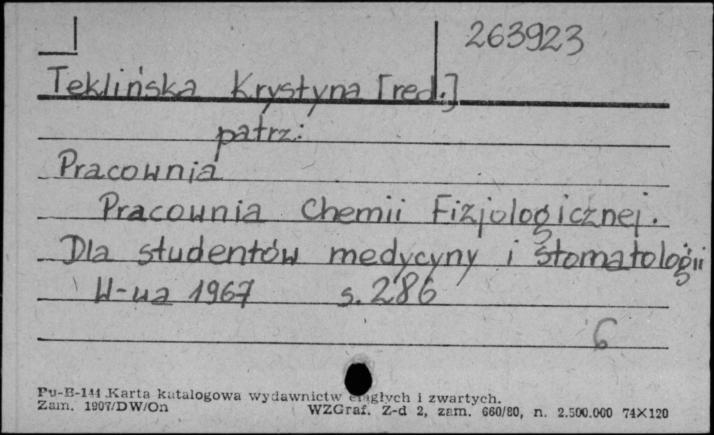 263923
Teklińska Krystyna [red.]
patrz:
Pracownia
Pracownia Chemii Fizjologicznej.
Dla studentów medycyny i stomatologii
W-wa 1967 s. 286
6
Pu-B-144 Karta katalogowa wydawnictw ciągłych i zwartych.
Zam. 1907/DW/On WZGraf. Z-d 2, zam. 660/80, n. 2.500.000 74×120